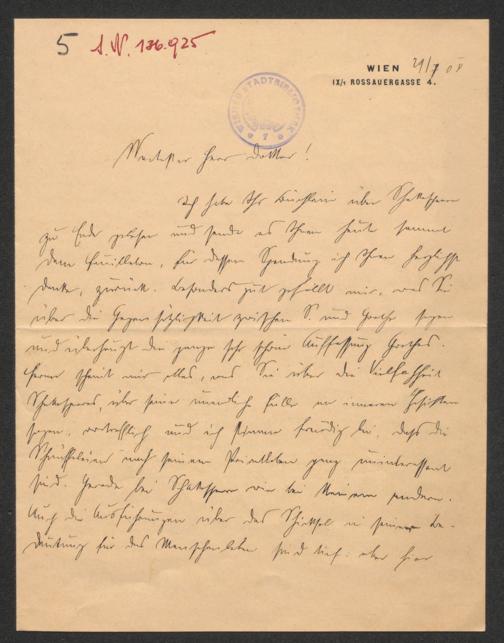 5 I.N. 136.925
WIEN 21/7 08
IX/1 ROSSAUERGASSE 4.
WIENER STADTBIBLIOTHEK
7
Wertester Herr Doktor!
Ich habe Ihr Büchlein über Shakespeare
zu Ende gelesen und sende es Ihnen heute sammt
dem Feuilleton, für dessen Spendung ich Ihnen herzlichst
danke, zurück. Besonders gut gefällt mir, was Sie
über die Gegensätzlichkeit zwischen S. und Goethe sagen
und überhaupt die ganze sehr schöne Auffassung Goethes.
Ferner scheint mir alles, was Sie über die Vielfachheit
Shakespeares, über seine unendliche Fülle an inneren Gesichten
sagen, vortrefflich und ich stimme freudig bei, dass die
Schnüffeleien nach seinem Privatleben ganz uninteressant
sind. Gerade bei Shakespeare wie bei keinem andern.
Auch die Ausführungen über das Schicksal in seiner Be-
deutung für das Menschenleben sind tief: aber hier